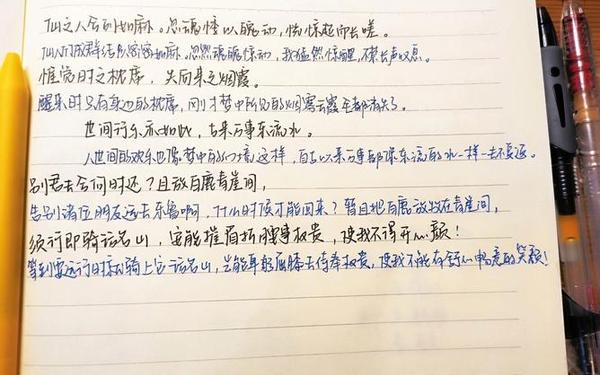 仙之人兮列如麻。忽魂悸以魄动，恍惊起而长嗟。
仙人们成群结队密密如麻。忽然魂魄惊动，我猛然惊醒，不禁长声叹息。
惟觉时之枕席，失向来之烟霞。
醒来时只有身边的枕席，刚才梦中所见的烟雾云霞全都消失了。
世间行乐亦如此，古来万事东流水。
人世间的欢乐也像梦中的幻境这样，自古以来万事都像东流的水一样一去不复返。
别君去兮何时还？且放白鹿青崖间，
告别诸位朋友远去东鲁啊，什么时候才能回来？暂且把白鹿放牧在青崖间，
须行即骑访名山，安能摧眉折腰事权贵，使我不得开心颜！
等到要远行时就骑上它访名山，岂能卑躬屈膝去侍奉权贵，使我不能有舒心畅意的笑颜！